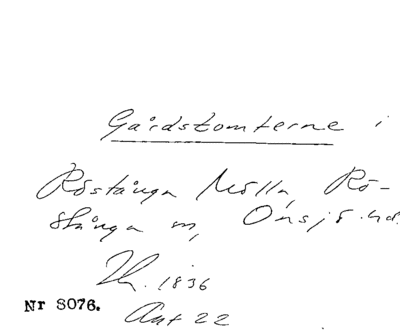 Gårdstomterne i
Röstånga Mölla, Rö-
stånga sn, Onsjö hd.
1836
Nr S076.
22